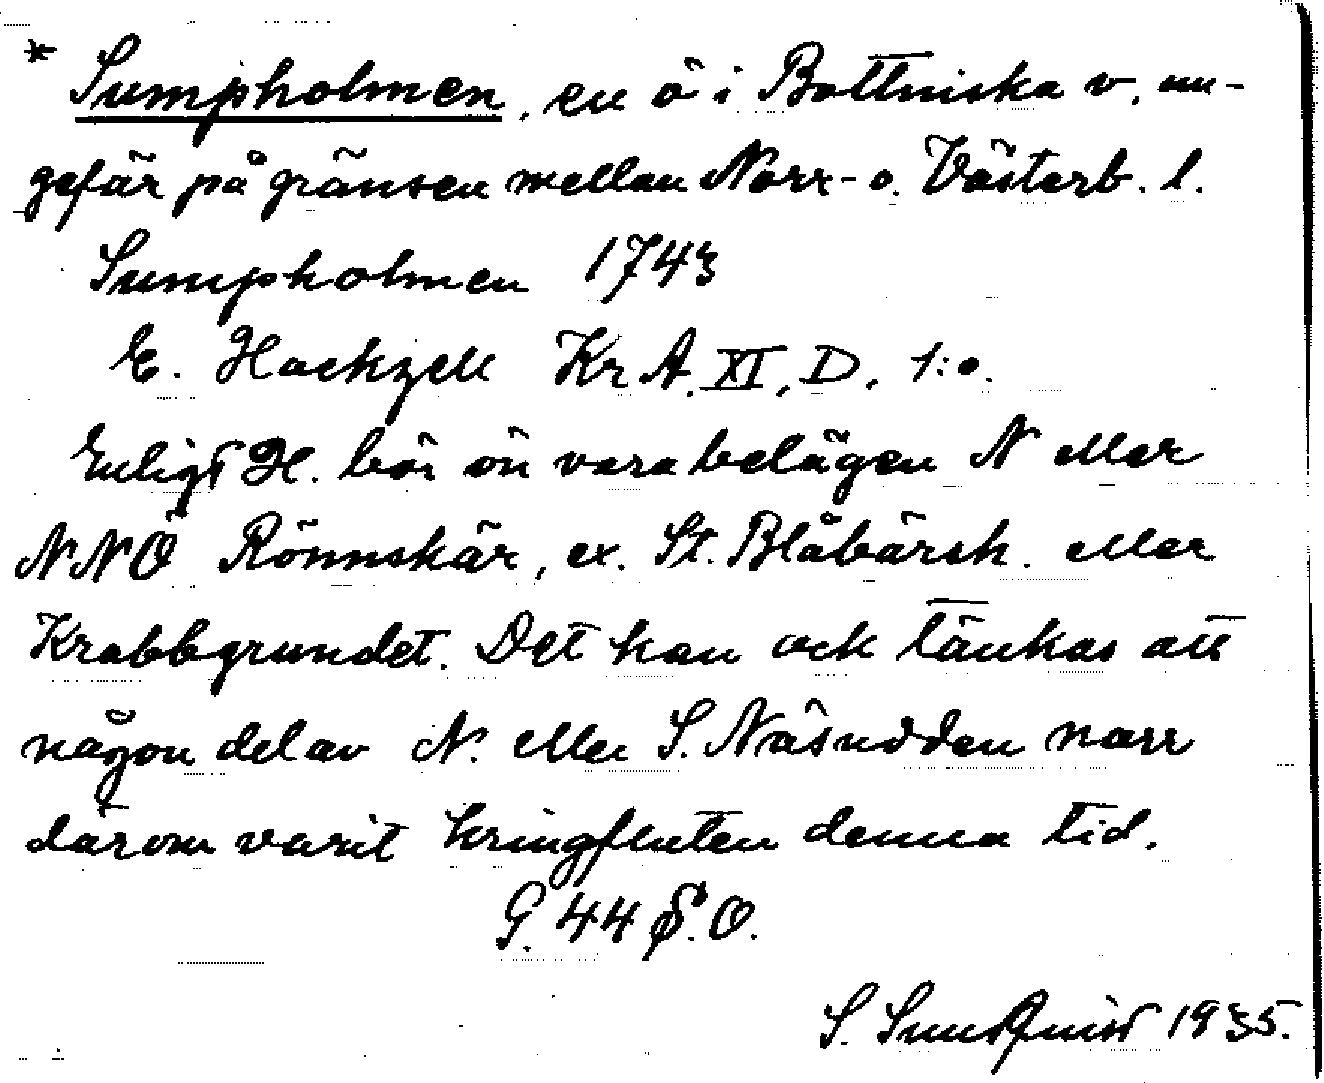 * Sumpholmen, en ö i Bottniska v. un-
gefär på gränsen mellan Norr- o. Västerb. l.
Sumpholmen 1743
E. Hackzell Kr A. XI, D, 1:o.
Enligt H. bör ön vara belägen N eller
NNO Rönnskär, ex. St. Blåbärsh. eller
Krabbgrundet. Det kan ock tänkas att
någon del av N. eller S. Näsudden norr
därom varit kringfluten denna tid.
G. 44 S.O.
S. Sundquist 1935.